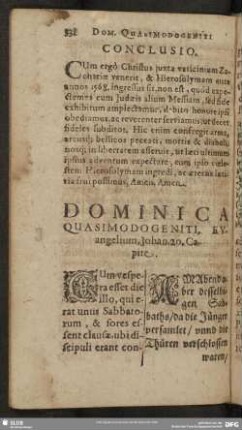 338 DOM. QUASIMODOGENITI
CONCLUSIO.
CUm ergò Christus juxta vaticinium Za-
chariæ venerit, & Hierosolymam ante
annos 1568. ingressus sit, non est, quòd expe-
ctemus cum Judæis alium Messiam, sed fide
exhibitum amplectamur, debito honore ipsi
obediamus, ac reverenter serviamus, ut decet
fideles subditos. Hic enim confregit arma,
arcum bellicum peccati, mortis & diaboli,
nosq; in libertatem asseruit, ut læti ultimum
ipsius adventum expectare, cum ipso cœle-
stem Hierosolymam ingredi, ac æterna læti-
tia frui possimus, Amen, Amen.
DOMINICA
QUASIMODOGENITI, EV-
angelium, Johan. 20. Ca-
pite.
CUm vespe-
ra esset die
illo, qui e-
rat unus Sabbato-
rum, & fores es-
sent clausæ, ubi di-
scipuli erant con-
AM Abend a-
ber desselbi-
gen Sab-
baths / da die Jünger
versamlet / vnnd die
Thüren verschlossen
waren /
SLUB
DFG